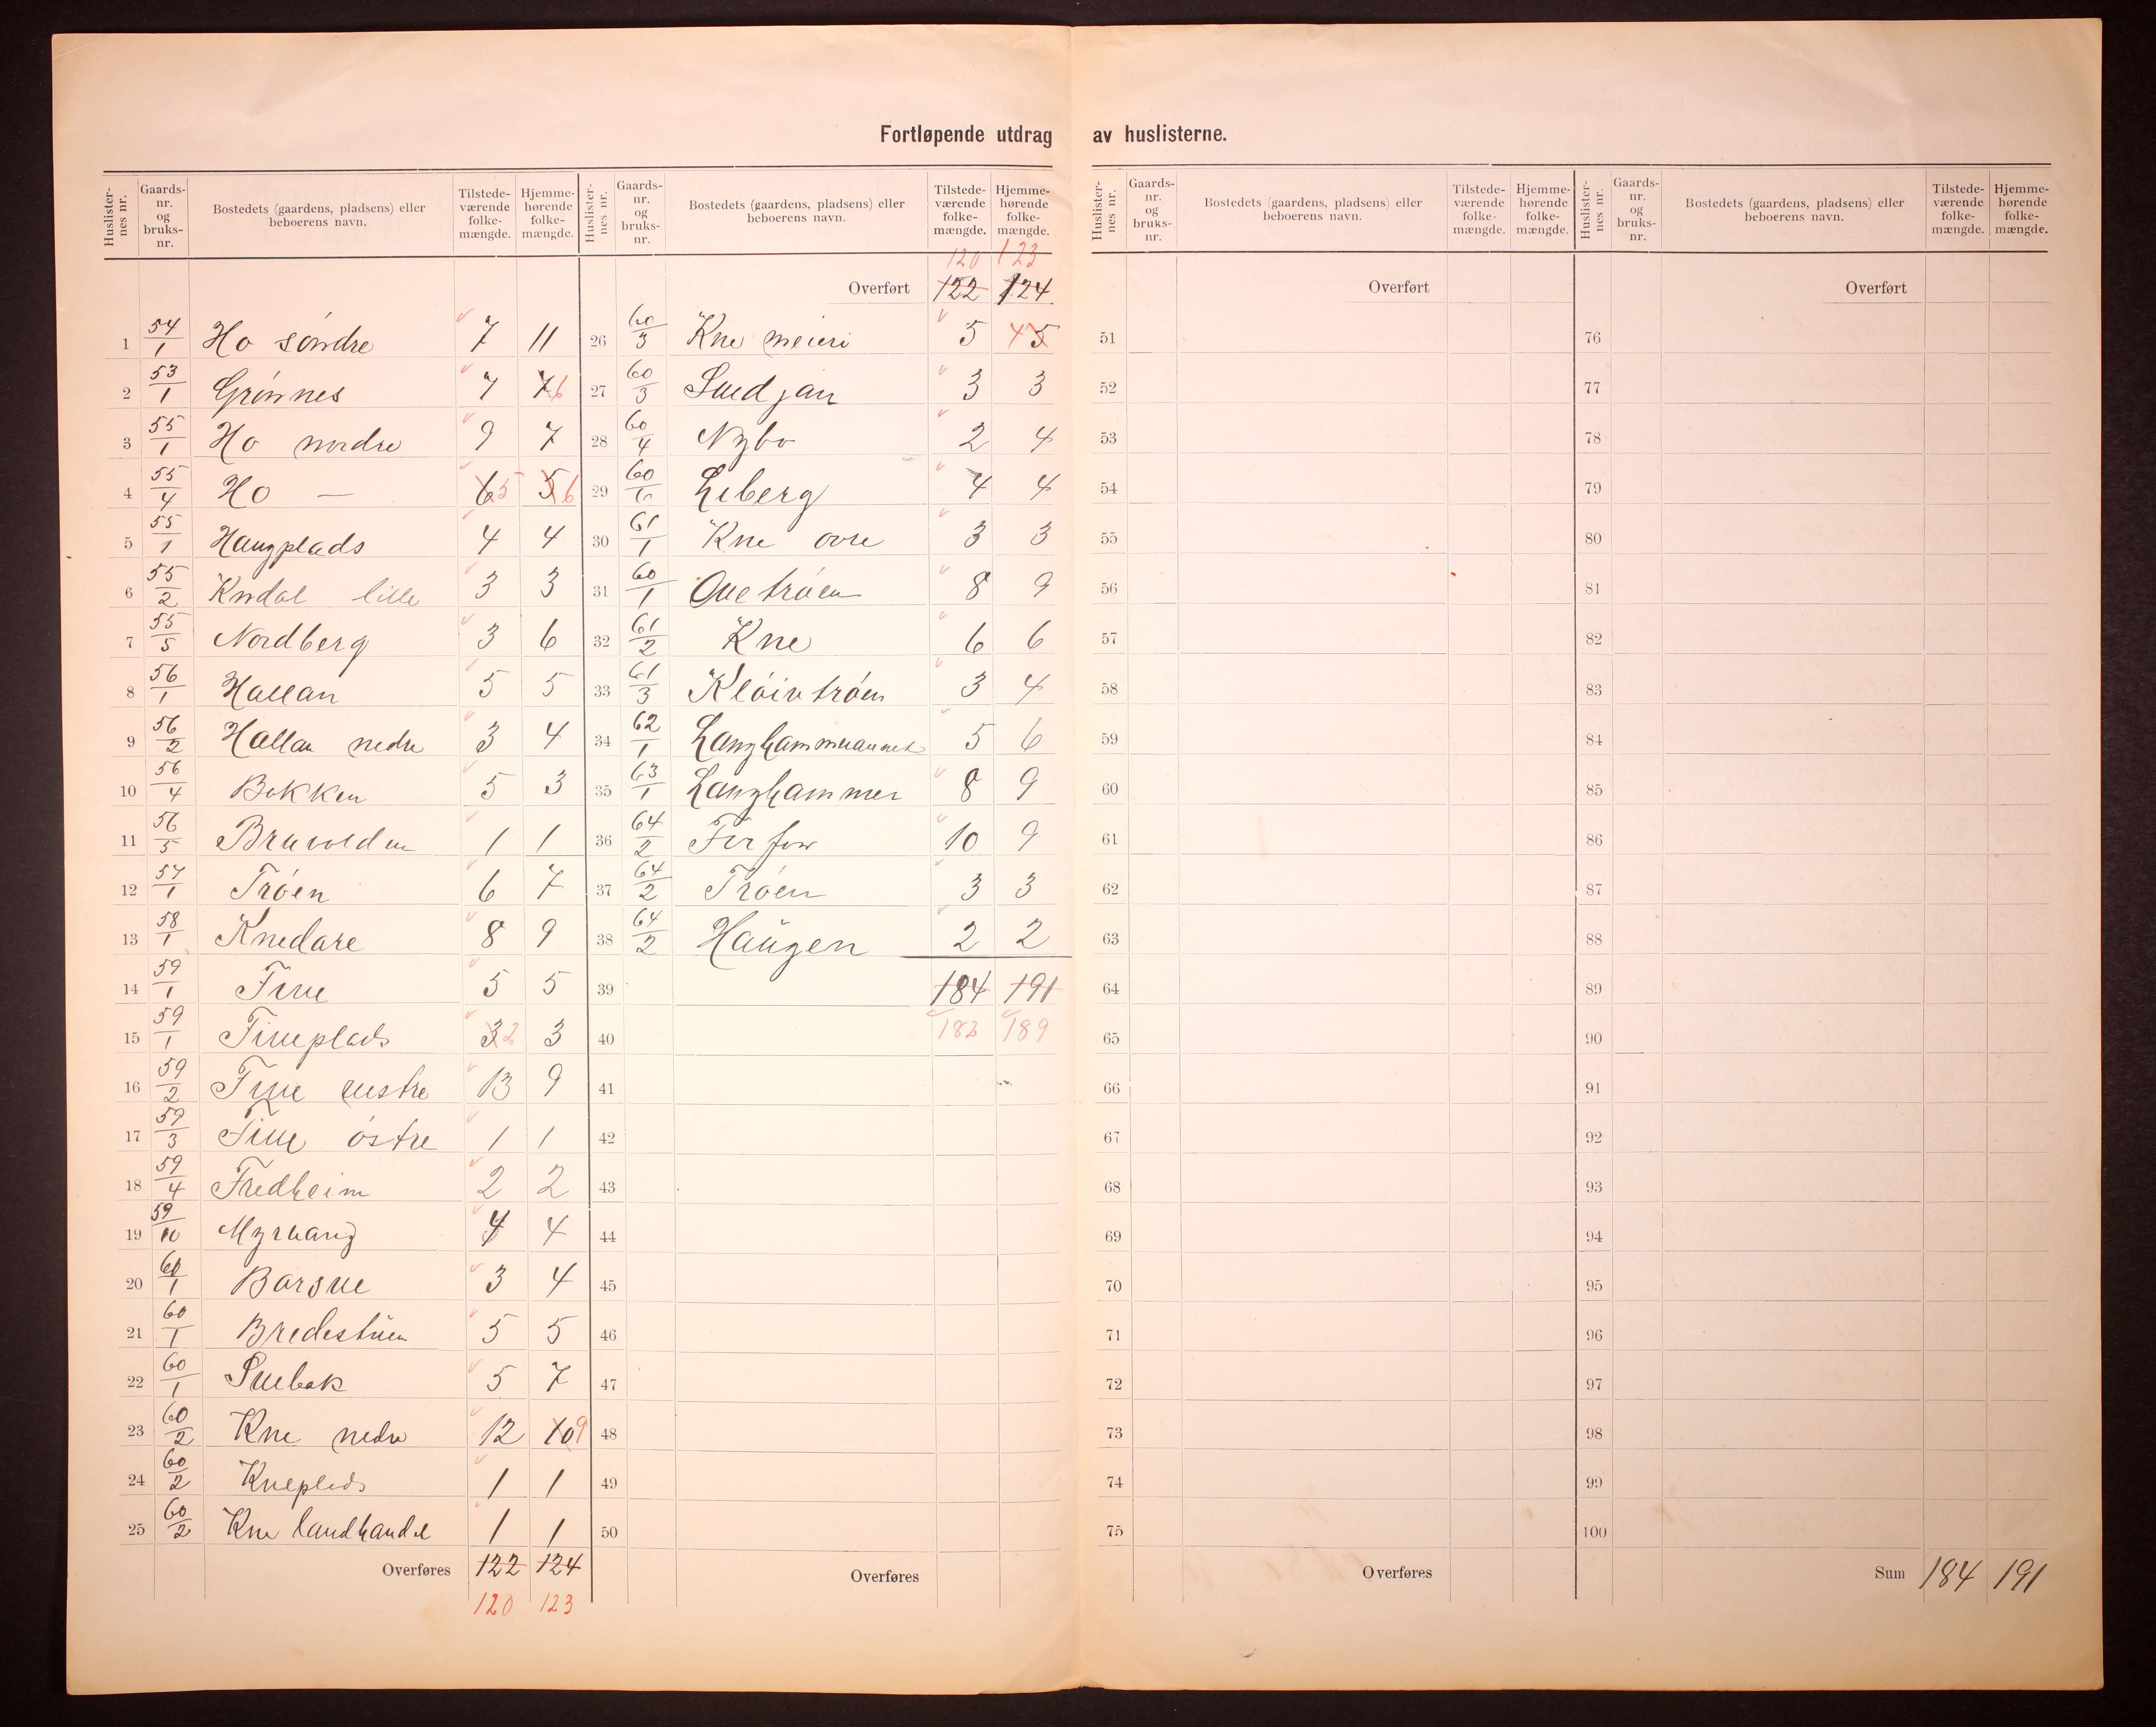 Fortløpende utdrag av huslisterne.
Huslisternes nr. Gaards-nr. og bruks-nr. Bostedets (gaardens, pladsens) eller beboerens navn. Tilstedeværende folkemængde. Hjemmehørende folkemængde.
1 54/1 Ho söndre 7 11
2 53/1 Grönnes 7 7 6
3 55/1 Ho nordre 9 7
4 55/4 Ho — 6 5 5 6
5 55/1 Haugplads 4 4
6 55/2 Kndal lille 3 3
7 55/5 Nordberg 3 6
8 56/1 Hallan 5 5
9 56/2 Hallan nedre 3 4
10 56/4 Bakken 5 3
11 56/5 Bruvolden 1 1
12 57/1 Tröen 6 7
13 58/1 Knedare 8 9
14 59/1 Fine 5 5
15 59/1 Fineplads 3 2 3
16 59/2 Fine vestre 13 9
17 59/3 Fine östre 1 1
18 59/4 Fredheim 2 2
19 59/10 Myrvang 4 4
20 60/1 Barsve 3 4
21 60/1 Bredestuen 5 5
22 60/1 Svebak 5 7
23 60/2 Kne nedre 12 10 9
24 60/2 Kneplads 1 1
25 60/2 Kne landhandel 1 1
Overføres 122 124
120 123
Huslisternes nr. Gaards-nr. og bruks-nr. Bostedets (gaardens, pladsens) eller beboerens navn. Tilstedeværende folkemængde. Hjemmehørende folkemængde.
120 123
Overført 122 124
26 60/3 Kne meieri 5 4 5
27 60/3 Svedjan 3 3
28 60/4 Nybo 2 4
29 60/6 Leberg 4 4
30 61/1 Kne övre 3 3
31 60/1 Ovetröen 8 9
32 61/2 Kne 6 6
33 61/3 Klöivtröen 3 4
34 62/1 5 6
35 63/1 Langhammer 8 9
36 64/2 10 9
37 64/2 Tröen 3 3
38 64/2 Haugen 2 2
39 184 191
40 182 189
41
42
43
44
45
46
47
48
49
50
Overføres
Huslisternes nr. Gaards-nr. og bruks-nr. Bostedets (gaardens, pladsens) eller beboerens navn. Tilstedeværende folkemængde. Hjemmehørende folkemængde.
Overført
51
52
53
54
55
56
57
58
59
60
61
62
63
64
65
66
67
68
69
70
71
72
73
74
75
Overføres
Huslisternes nr. Gaards-nr. og bruks-nr. Bostedets (gaardens, pladsens) eller beboerens navn. Tilstedeværende folkemængde. Hjemmehørende folkemængde.
Overført
76
77
78
79
80
81
82
83
84
85
86
87
88
89
90
91
92
93
94
95
96
97
98
99
100
Sum 184 191